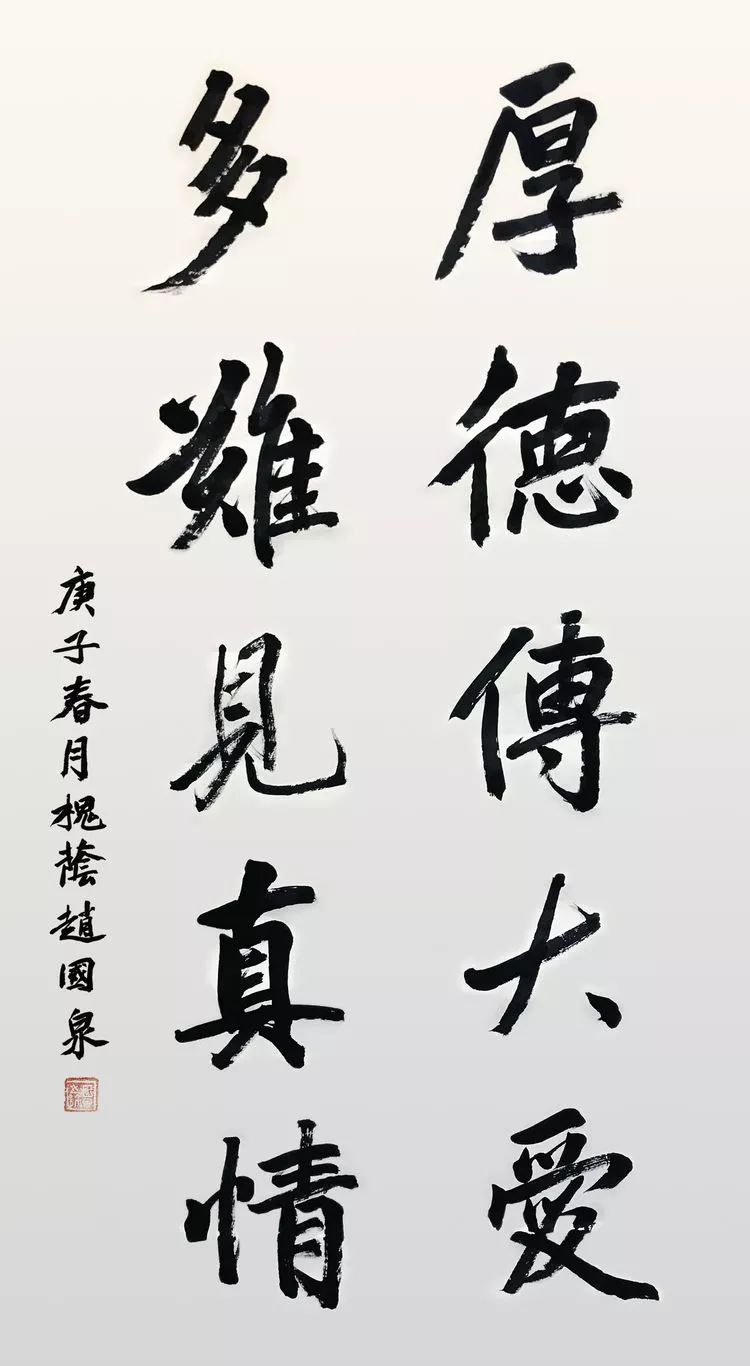 厚德傳大愛
多難見真情
庚子春月槐蔭趙國泉